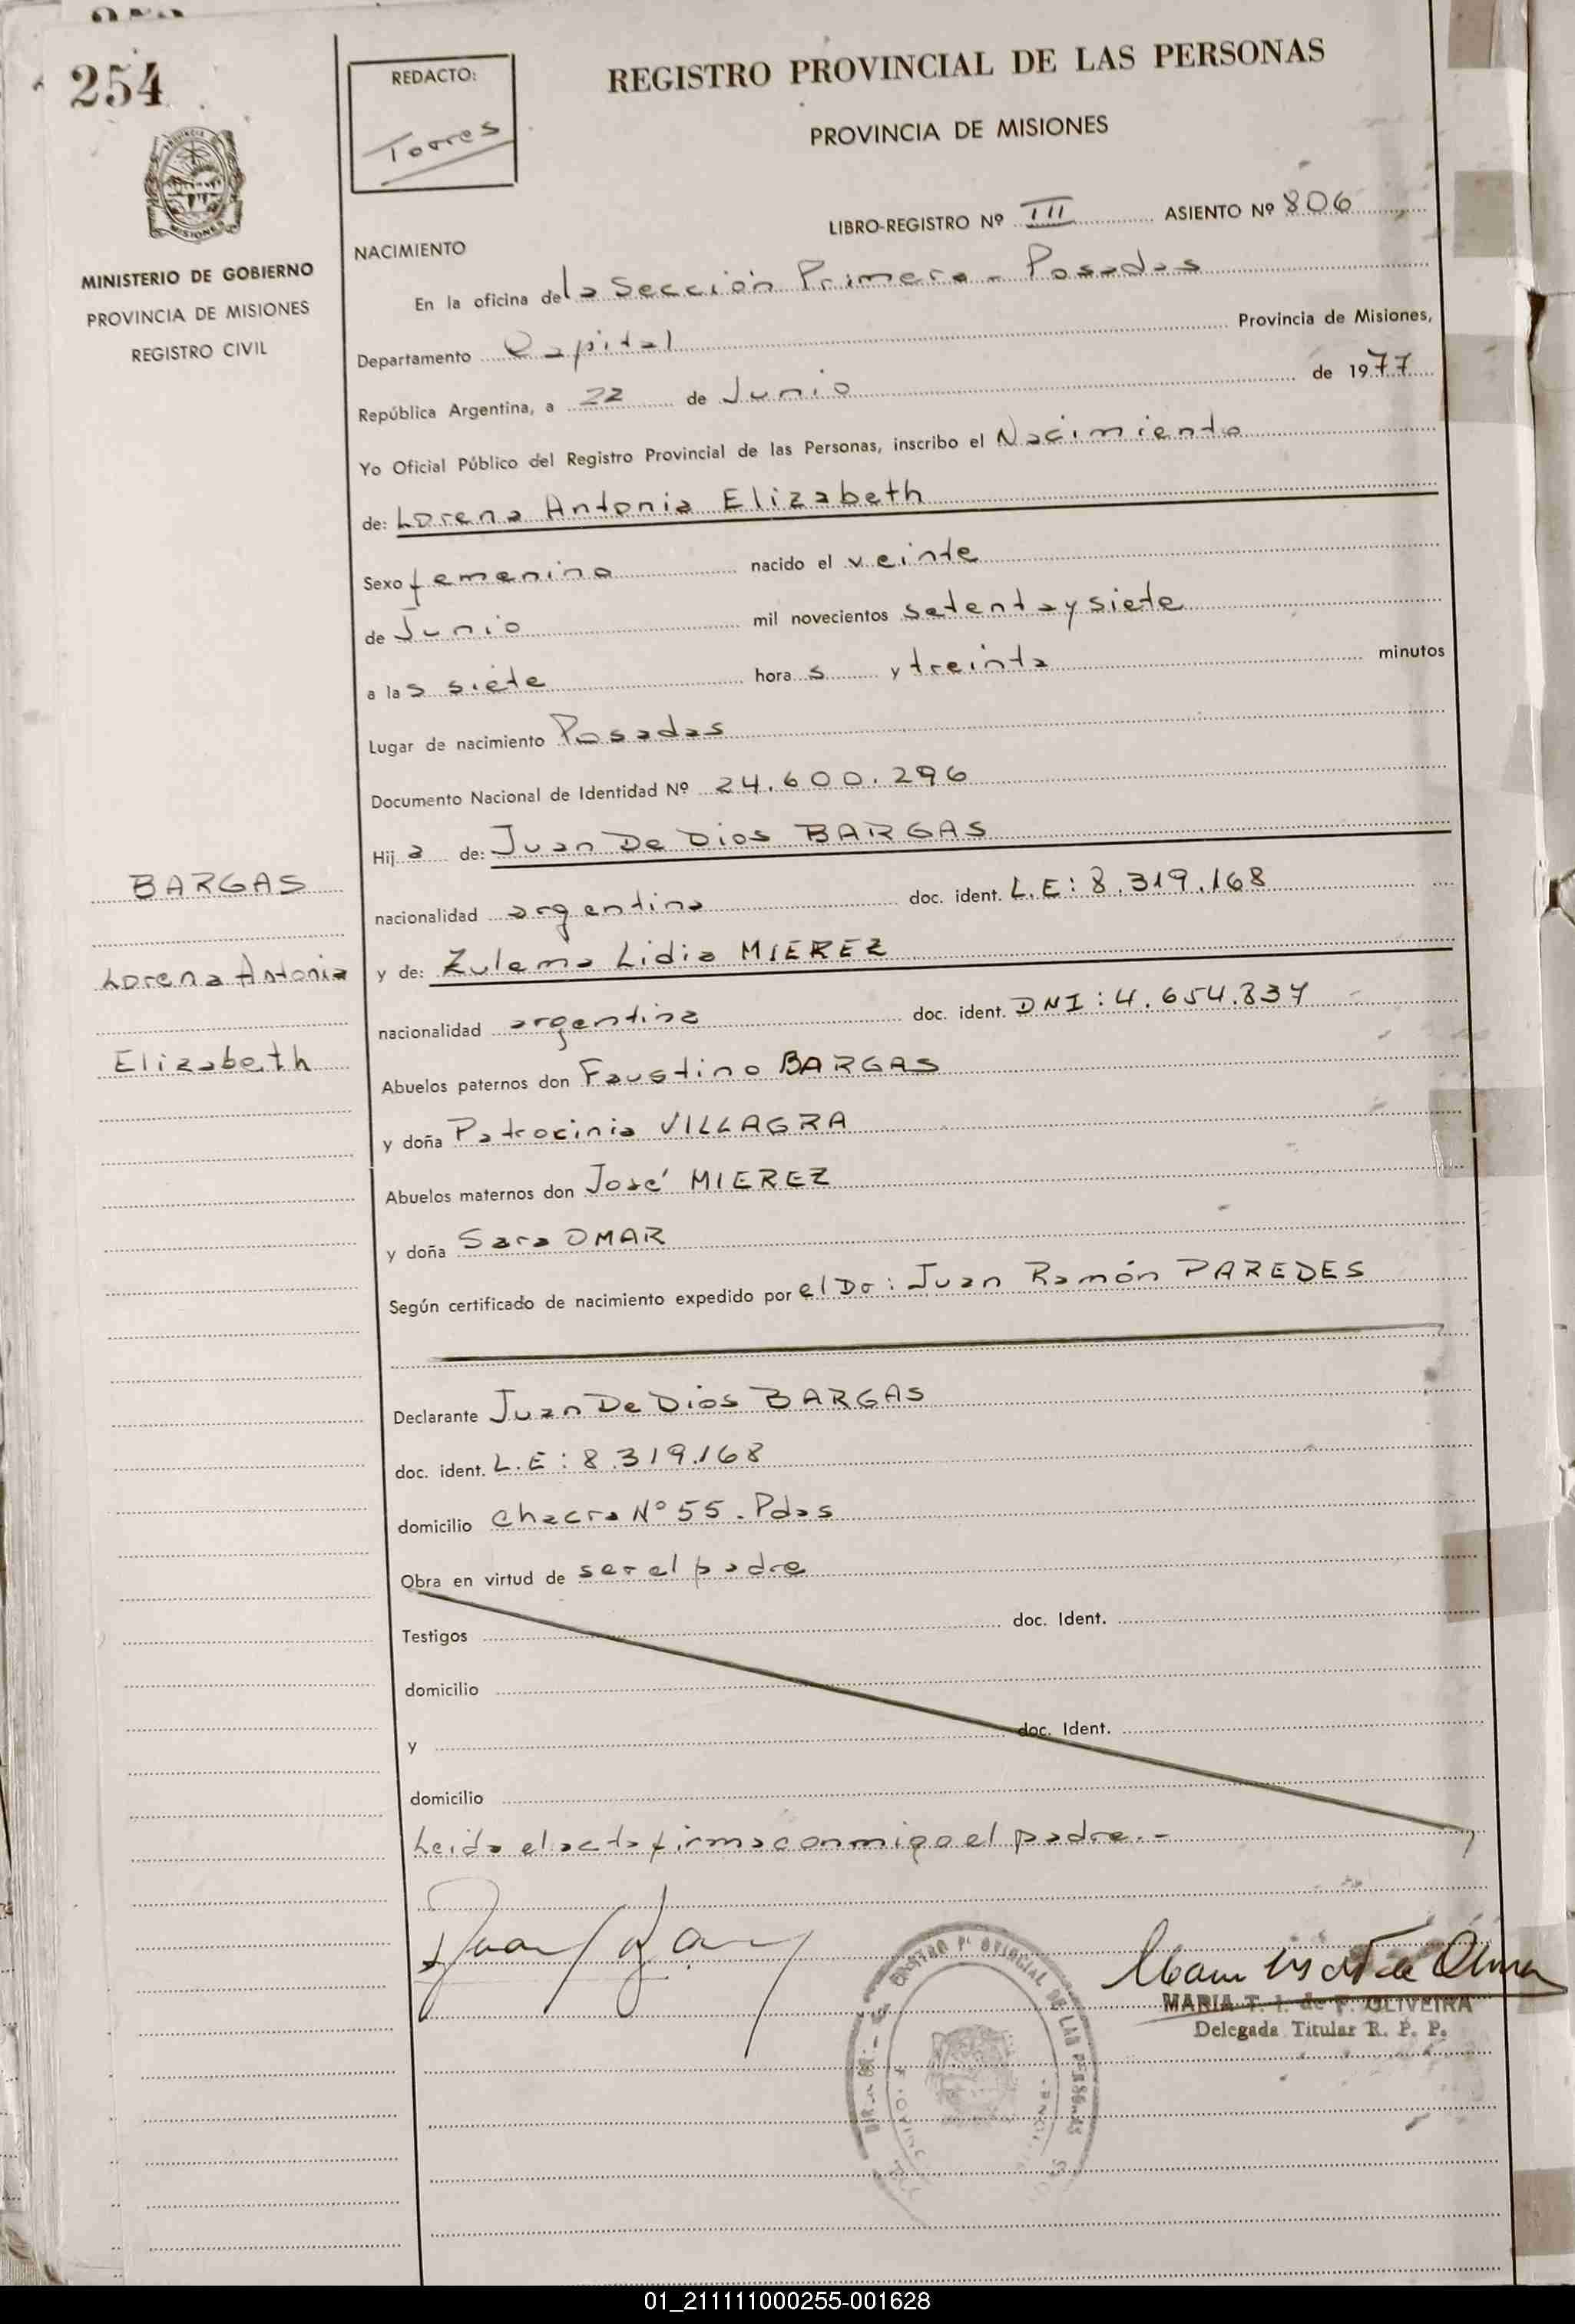 254
REDACTO:
Torres
REGISTRO PROVINCIAL DE LAS PERSONAS
PROVINCIA DE MISIONES
LIBRO-REGISTRO Nº III ASIENTO Nº 806
MINISTERIO DE GOBIERNO
PROVINCIA DE MISIONES
REGISTRO CIVIL
NACIMIENTO
En la oficina de la Sección Primera - Posadas
Departamento Capital Provincia de Misiones,
República Argentina, a 22 de Junio de 1977
Yo Oficial Público del Registro Provincial de las Personas, inscribo el Nacimiento
de: Lorena Antonia Elizabeth
Sexo femenino nacido el veinte
de Junio mil novecientos setenta y siete
a las siete horas y treinta minutos
Lugar de nacimiento Posadas
Documento Nacional de Identidad Nº 24.600.296
Hija de: Juan De Dios BARGAS
BARGAS
nacionalidad argentina doc. ident. L.E: 8.319.168
Lorena Antonia
y de: Zulema Lidia MIEREZ
nacionalidad argentina doc. ident. DNI: 4.654.834
Elizabeth
Abuelos paternos don Faustino BARGAS
y doña Patrocinia VILLAGRA
Abuelos maternos don José MIEREZ
y doña Sara OMAR
Según certificado de nacimiento expedido por el Dr: Juan Ramón PAREDES
Declarante Juan De Dios BARGAS
doc. ident. L.E: 8.319.168
domicilio Chacra Nº 55. Pdas
Obra en virtud de ser el padre
Testigos doc. Ident.
domicilio
y doc. Ident.
domicilio
Leida el acta firma conmigo el padre.-
MARIA T. I. de F. OLIVEIRA
Delegada Titular R. P. P.
01_211111000255-001628